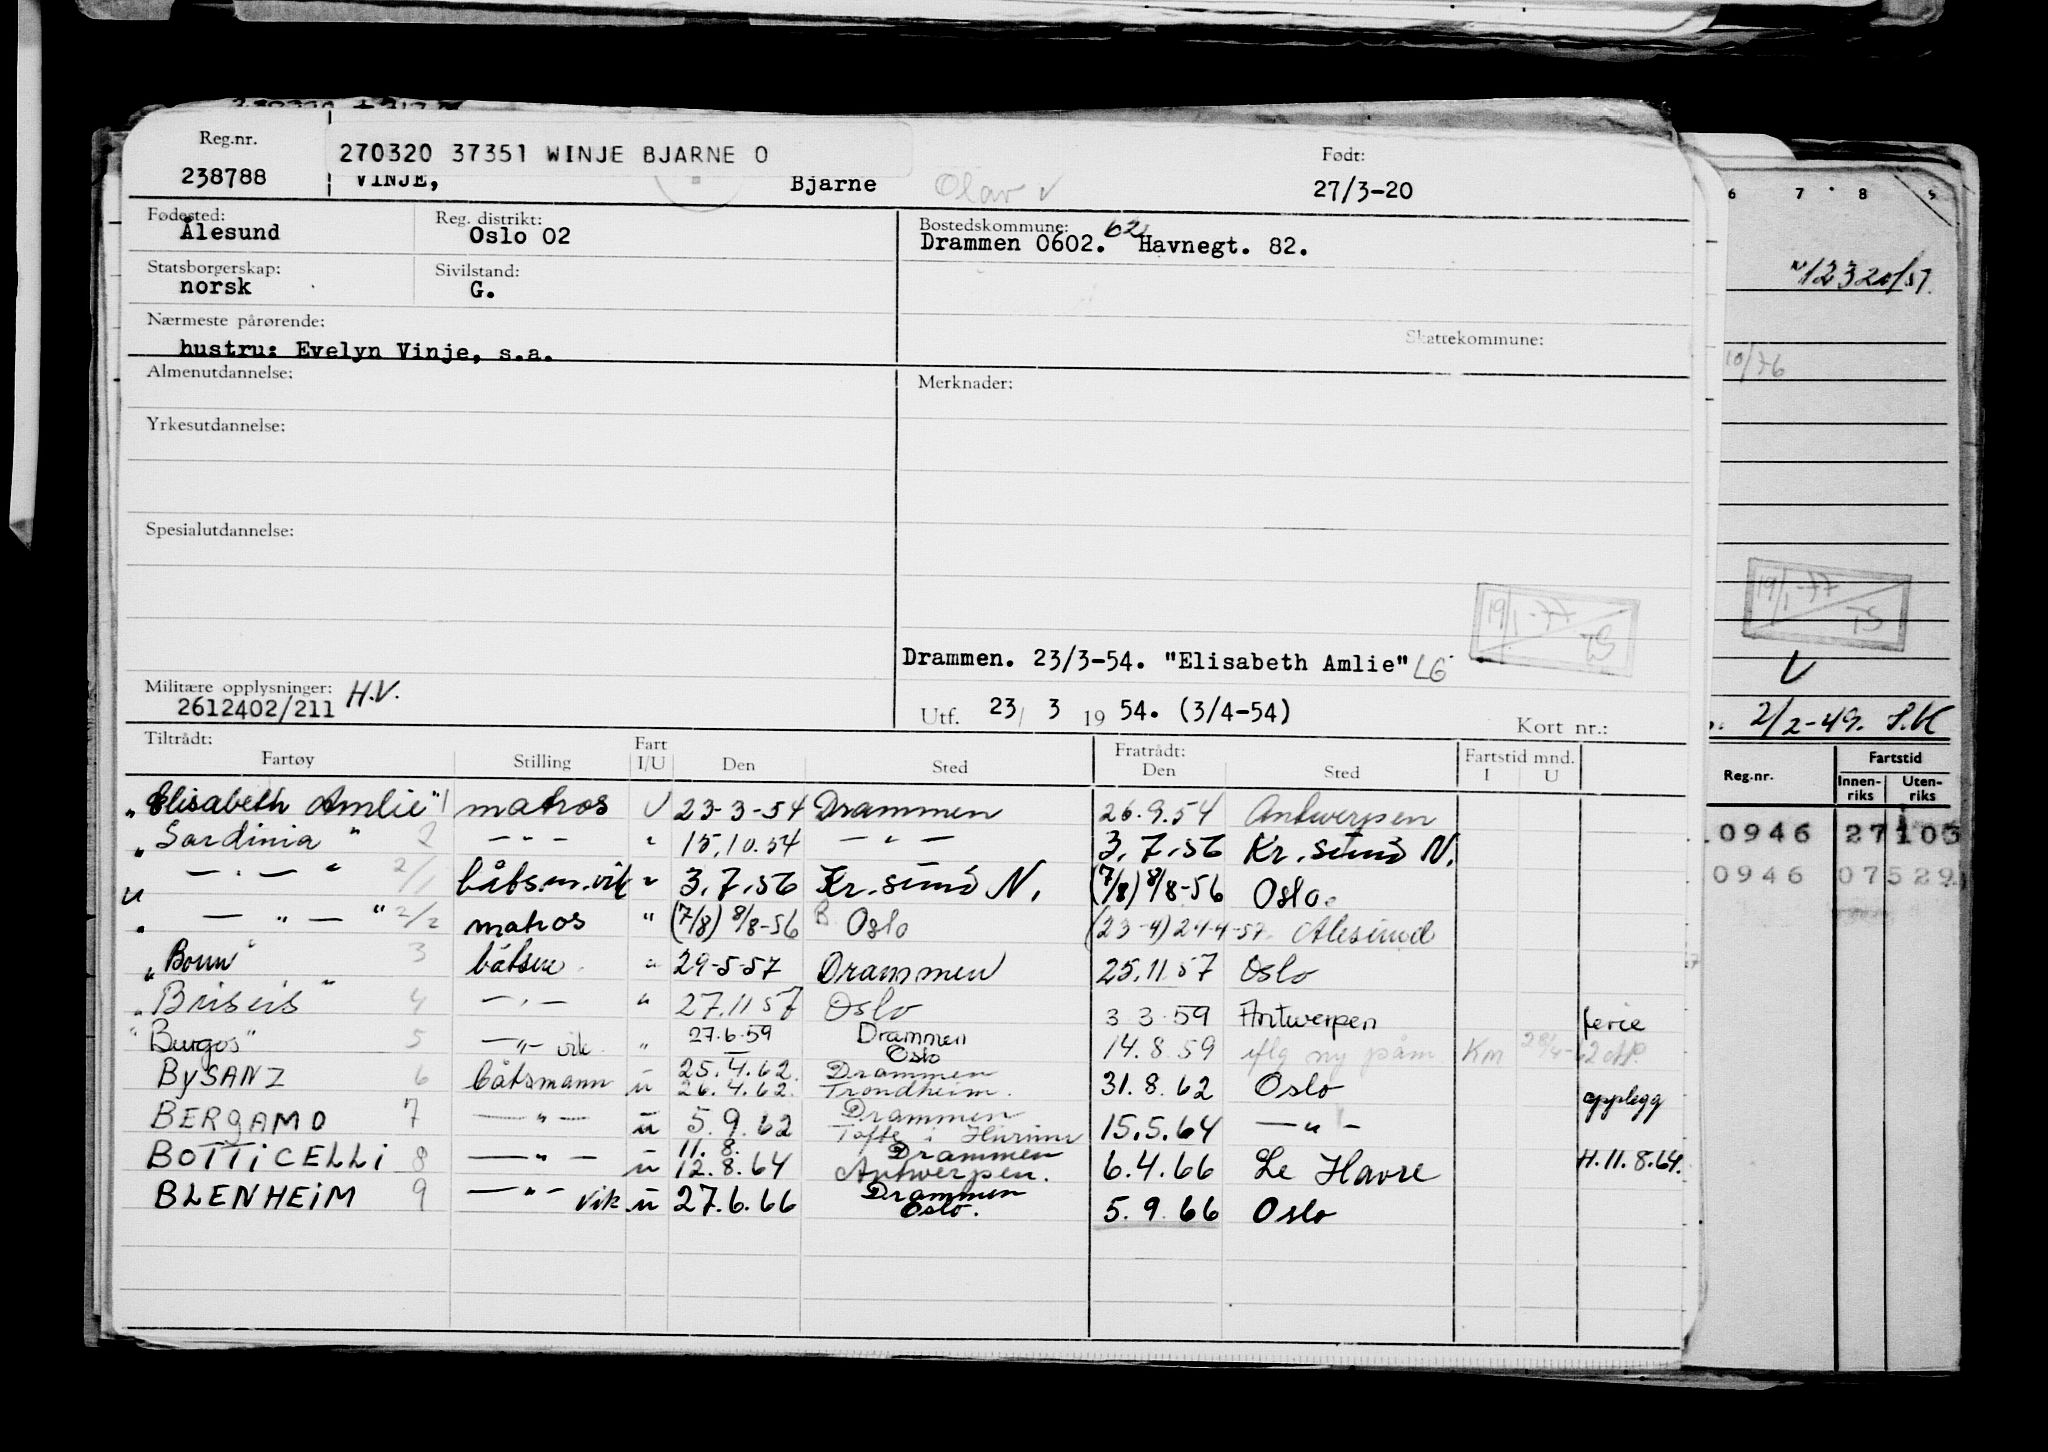 Reg.nr.
238788
270320 37351 WINJE BJARNE O
VINJE, Bjarne Olav v
Født:
27/3-20
Fødested:
Ålesund
Reg. distrikt:
Oslo 02
Bostedskommune: 62
Drammen 0602. Havnegt. 82.
Statsborgerskap:
norsk
Sivilstand:
G.
Nærmeste pårørende:
hustru: Evelyn Vinje, s.a.
Skattekommune:
Almenutdannelse:
Merknader:
Yrkesutdannelse:
Spesialutdannelse:
19/1-77
Drammen. 23/3-54. "Elisabeth Amlie" LG
Militære opplysninger: H.V.
2612402/211
Utf. 23/ 3 19 54. (3/4-54)
Kort nr.:
Tiltrådt:
Fartøy Stilling Fart I/U Den Sted Fratrådt: Den Sted Fartstid mnd. I U
"Elisabeth Amlie" 1 matros U 23-3-54 Drammen 26.9.54 Antwerpen
"Sardinia" 2 — " — " 15.10.54 — " — 3.7.56 Kr.sund N.
— " — " 2/1 båtsm.vik " 3.7.56 Kr.sund N. (7/8) 8/8-56 Oslo.
" — " — " 2/2 matros " (7/8) 8/8-56 B. Oslo (23-4) 24-4-57 Ålesund
"Bonn" 3 båtsm " 29-5-57 Drammen 25.11.57 Oslo
"Briseis" 4 — " — " 27.11 57 Oslo 3 3 59 Antwerpen ferie
"Burgos" 5 — " — vik. " 27.6.59 Drammen Oslo 14.8.59 iflg ny påm Km
BYSANZ 6 båtsmann u 25.4.62. Drammen
26.4.62. Trondheim. 31.8.62 Oslo opplegg
BERGAMO 7 — " — u 5.9.62 Drammen
Tofte i Hurum 15.5.64 — " —
BOTTICELLI 8 — " — u 11.8. Drammen
12.8.64 Antwerpen. 6.4.66 Le Havre H.11.8.64.
BLENHEIM 9 — " — vik u 27.6.66 Drammen
Oslo. 5.9.66 Oslo
6 7 8
10/76
19/1-77
V
2/2-49.
Reg.nr. Fartstid
Innen-riks Uten-riks
.0946 27103
0946 07529